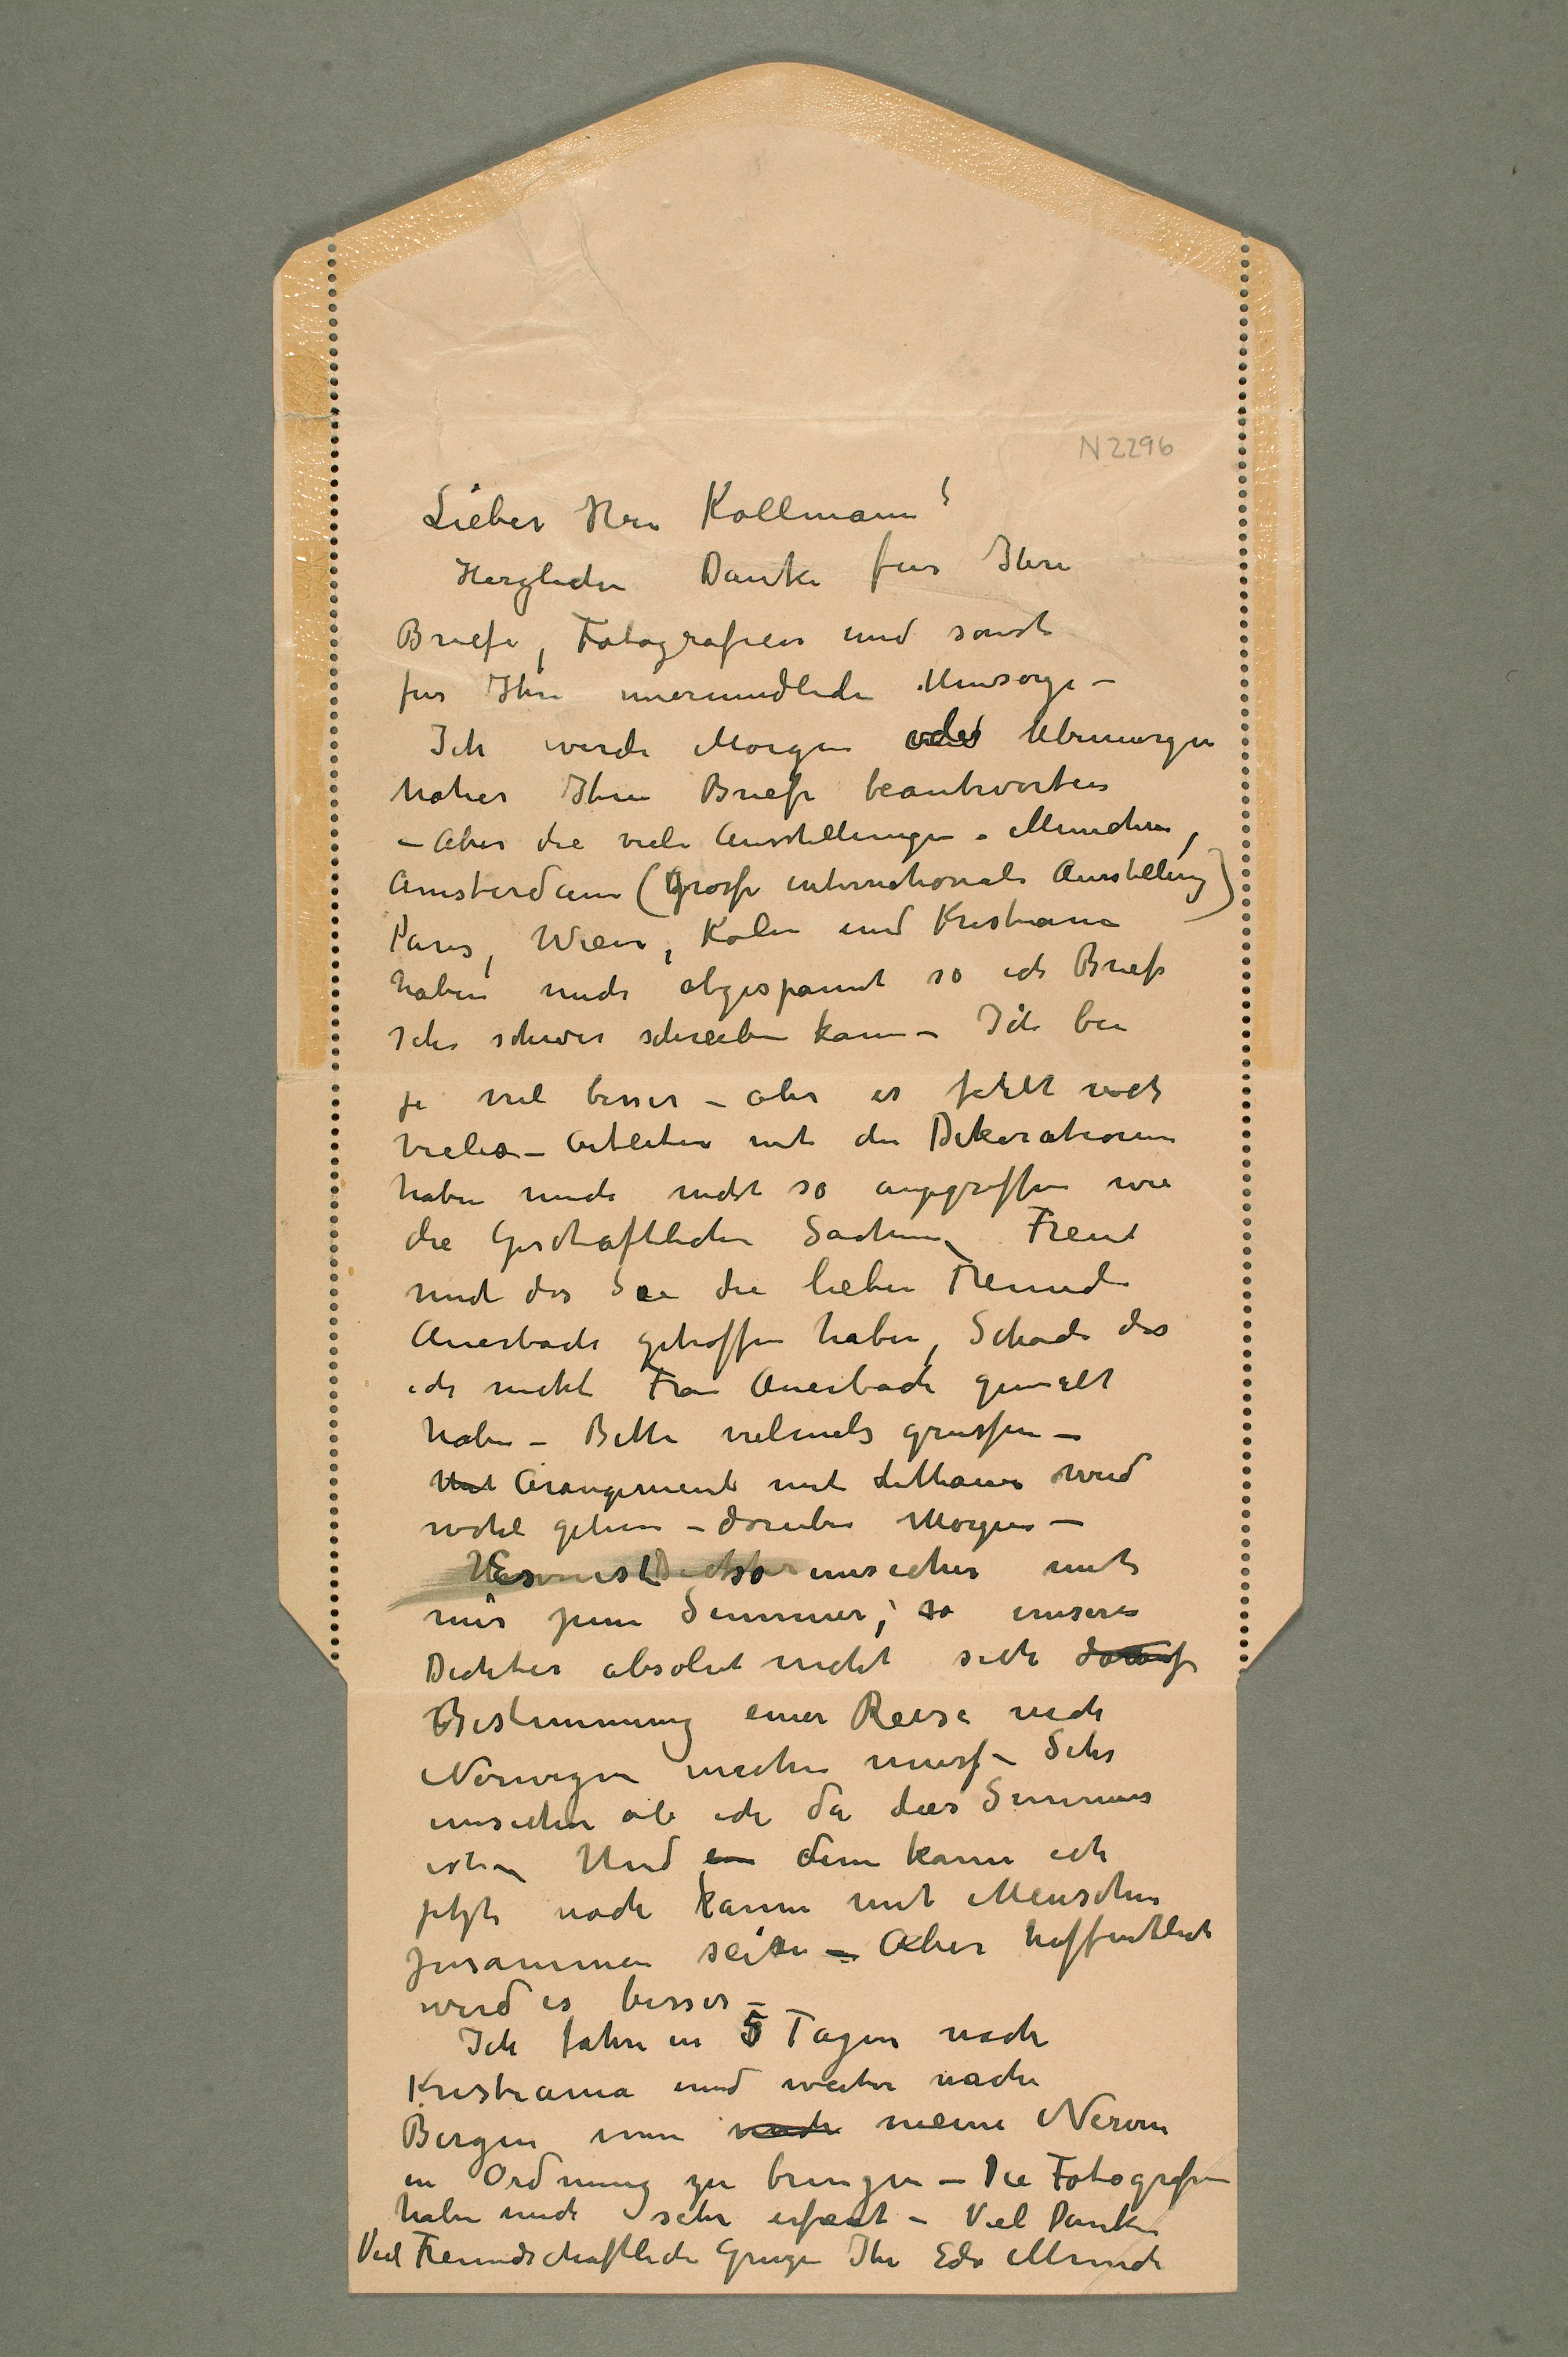 N 2296
Lieber Herr Kollmann!
Herzlichen Danke für Ihre
Briefe, Fotografien und sonst
für Ihre unermudliche Umsorge –
Ich werde Morgen oder Ubermorgen
naher Ihre Briefe beantworten
– Aber die viele Ausstellungen – Munchen,
Amsterdam (Grosse internationale Ausstellung)
Paris, Wien, Kolen und Kristiania
haben mich abgespannt so ich Briefe
sehr schwer schreiben kann – Ich bin
ja viel besser – aber es fehlt noch
vieles – Arbeiten mit den Dekorationen
haben mich nicht so angegriffen wie
die Geschaftlichen Sachen – Freut
mich das Sie die lieben Freunde
Auerbach getroffen haben, Schade das
ich nicht Frau Auerbach gemalt
habe – Bitte vielmals grussen –
Mit Arangement mit Littauer wird
wohl gehen – daruber Morgen –
Es ist so unsicher mit
mir zum Summer; so unsere
Dichter absolut nicht sich darauf
Bestimmung einer Reise nach
Norwegen machen muss – Sehr
unsicher ob ich da dies Summer
ist – Und dem kann ich
jetzt noch kaum mit Menschen
zusammen sein – Aber hoffentlich
wird es besser –
Ich fahre in 5 Tagen nach
Kristiania und weiter nach
Bergen um nach meine Nerven
in Ordnung zu bringen – Die Fotografien
haben mich sehr erfreut – Viel Danke
Viel Freundschaftliche Gruze Ihr Edv Munch